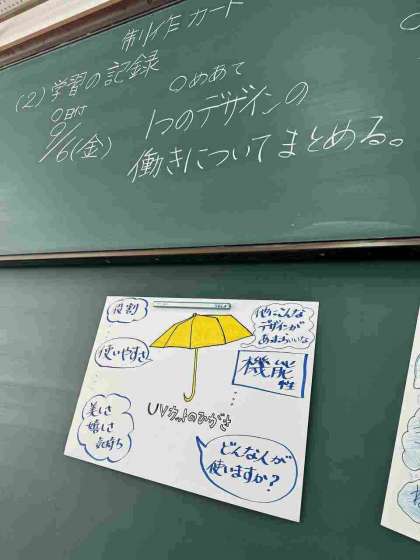 制作カード
(2)学習の記録
○日付
9/6(金)
○めあて
1つのデザインの
働きについてまとめる。
役割
使いやすさ
美しさ
嬉しさ
気持ち
他にこんな
デザインが
あったらいいな
機能性
UVカットのひがさ
どんな人が
使いますか?